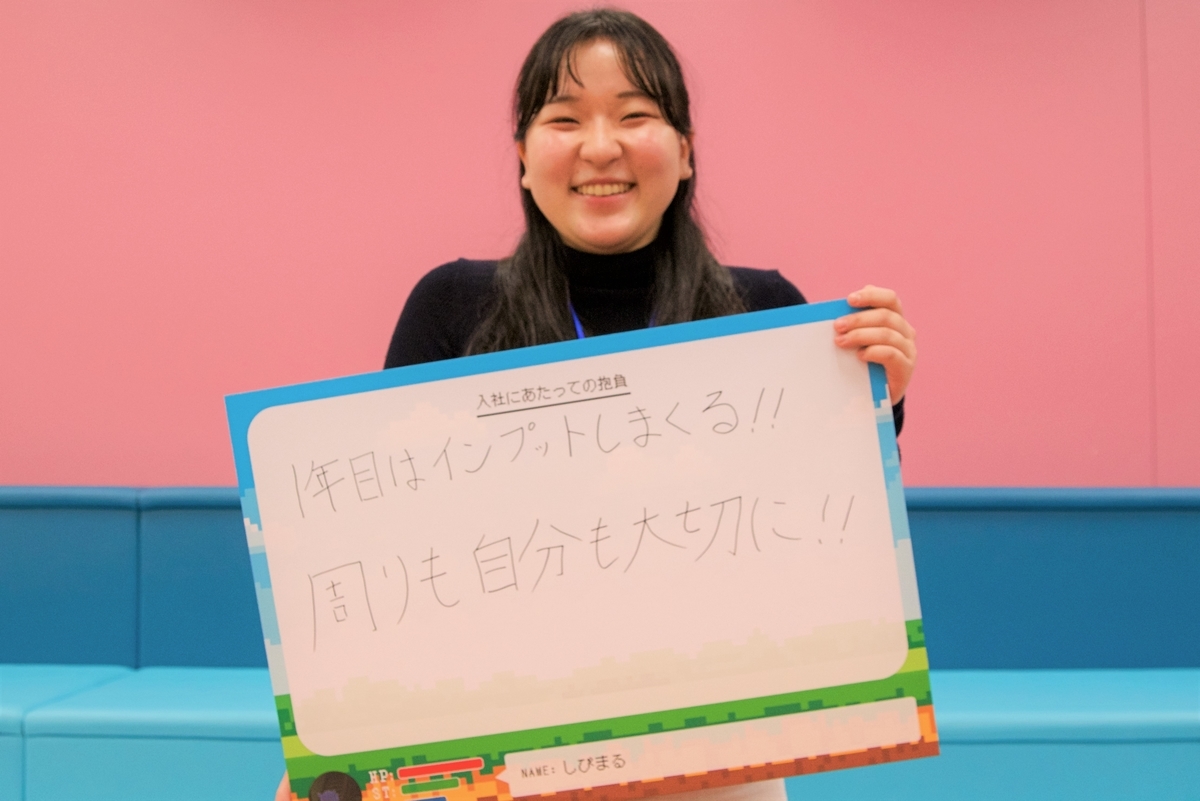 入社にあたっての抱負
1年目はインプットしまくる!!
周りも自分も大切に!!
HP:
ST:
NAME: しぴまる